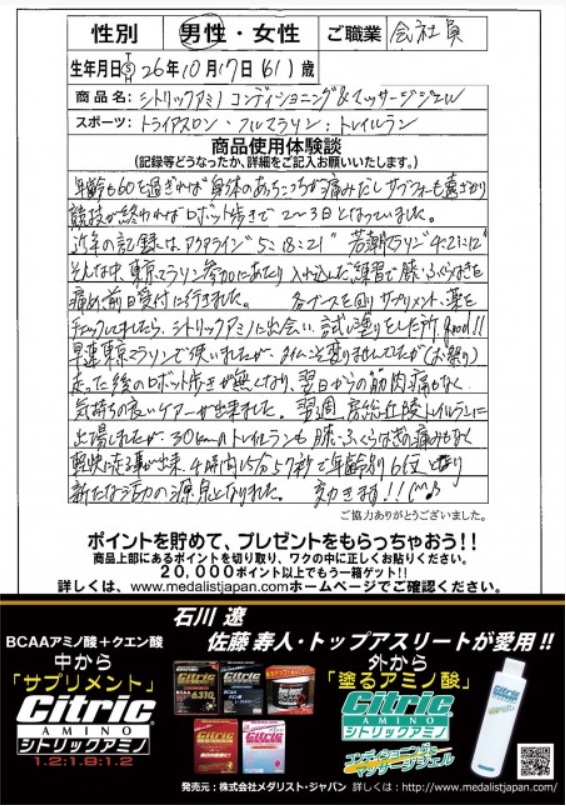 性別 男性・女性 ご職業 会社員
生年月日 T S H 26年10月17日(61)歳
商品名: シトリックアミノ コンディショニング&マッサージジェル
スポーツ: トライアスロン・フルマラソン・トレイルラン
商品使用体験談
(記録等どうなったか、詳細をご記入お願いいたします。)
年齢も60を過ぎれば身体のあっちこっちが痛みだしサブフォーも遠ざかり
競技が終わればロボット歩きで2〜3日となっていました。
近年の記録は、アクアライン"5:18:21" 若潮マラソン"4:21:12"
そんな中、東京マラソン参加にあたり 入れ込んだ練習で膝・ふくらはぎを
痛め、前日受付に行きました。 各ブースを回りサプリメント、薬を
チェックしてましたら、シトリックアミノに出会い、試し塗りをした所、good!!
早速東京マラソンで使いましたが、タイムこそ変りませんでしたが(お祭り)
走った後のロボット歩きが無くなり、翌日からの筋肉痛もなく
気持ちの良いケアーが出来ました。翌週、房総丘陵トレイルランに
出場しましたが、30kmのトレイルランも膝・ふくらはぎの痛みもなく
軽快に走る事が出来、4時間15分57秒で年齢別6位となり
新たな活力の源泉となりました。 効きます!!
ご協力ありがとうございました。
ポイントを貯めて、プレゼントをもらっちゃおう!!
商品上部にあるポイントを切り取り、ワクの中に正しくお貼りください。
20,000ポイント以上でもう一箱ゲット!!
詳しくは、www.medalistjapan.comホームページでご確認ください。
石川 遼
佐藤 寿人・トップアスリートが愛用!!
BCAAアミノ酸+クエン酸
中から
「サプリメント」
Citric
AMINO
シトリックアミノ
1.2:1.9:1.2
外から
「塗るアミノ酸」
Citric
AMINO
シトリックアミノ
コンディショニング&
マッサージジェル
発売元:株式会社メダリスト・ジャパン 詳しくは:http://www.medalistjapan.com/